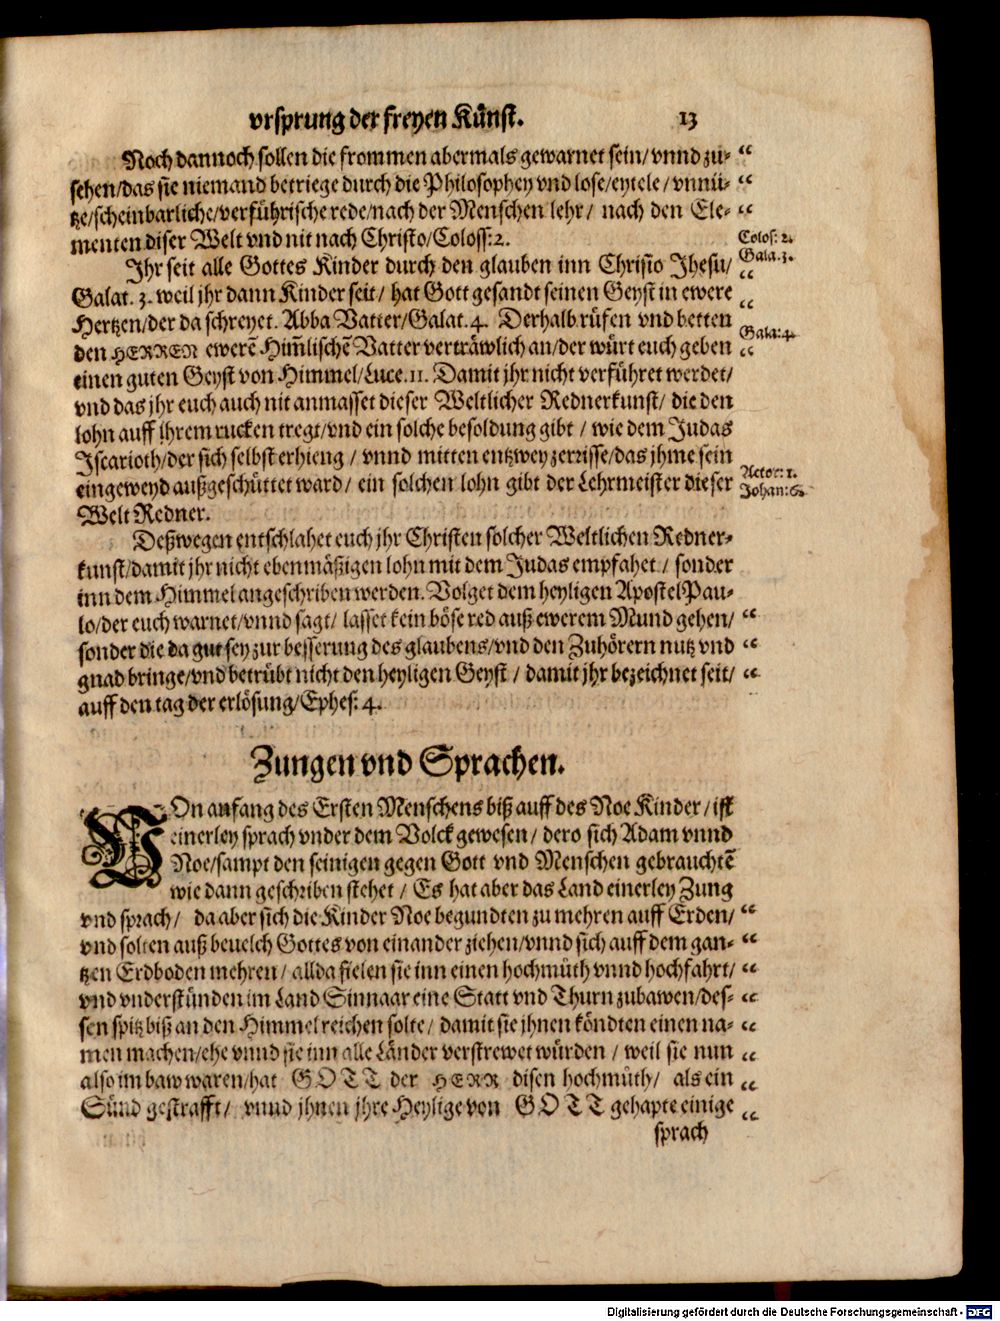 vrsprung der freyen Künst. 13
Noch dannoch sollen die frommen abermals gewarnet sein/ vnnd zu- “
sehen/das sie niemand betriege durch die Philosophey vnd lose/eytele/ vnnü- “
tze/scheinbarliche/verführische rede/nach der Menschen lehr/ nach den Ele- “
menten diser Welt vnd nit nach Christo/Coloss:2.
Colos: 2.
Ihr seit alle Gottes Kinder durch den glauben inn Christo Jhesu/
Gala. 3. “
Galat. 3. weil jhr dann Kinder seit/ hat Gott gesandt seinen Geyst in ewere “
Hertzen/der da schreyet. Abba Vatter/Galat. 4. Derhalb rüfen vnd betten
Gala: 4.
den HERREN ewerē Him̄lischē Vatter verträwlich an/der würt euch geben “
einen guten Geyst von Himmel/Luce. 11. Damit jhr nicht verführet werdet/
vnd das jhr euch auch nit anmasset dieser Weltlicher Rednerkunst/ die den
lohn auff ihrem rucken tregt/vnd ein solche besoldung gibt/ wie dem Judas
Iscarioth/der sich selbst erhieng/ vnnd mitten entzwey zerrisse/das jhme sein
Actor: 1.
eingeweyd außgeschüttet ward/ ein solchen lohn gibt der Lehrmeister dieser
Johan: 6.
Welt Redner.
Deßwegen entschlahet euch jhr Christen solcher Weltlichen Redner-
kunst/damit jhr nicht ebenmäßigen lohn mit dem Judas empfahet/ sonder
inn dem Himmel angeschriben werden. Volget dem heyligen Apostel Pau-
lo/der euch warnet/vnnd sagt/ lasset kein böse red auß ewerem Mund gehen/ “
sonder die da gut sey zur besserung des glaubens/vnd den Zuhörern nutz vnd “
gnad bringe/vnd betrübt nicht den heyligen Geyst/ damit jhr bezeichnet seit/ “
auff den tag der erlösung/Ephes: 4.
Zungen vnd Sprachen.
VOn anfang des Ersten Menschens biß auff des Noe Kinder/ ist
einerley sprach vnder dem Volck gewesen/ dero sich Adam vnnd
Noe/sampt den seinigen gegen Gott vnd Menschen gebrauchtē
wie dann geschriben stehet/ Es hat aber das Land einerley Zung
vnd sprach/ da aber sich die Kinder Noe begundten zu mehren auff Erden/ “
vnd solten auß beuelch Gottes von einander ziehen/vnnd sich auff dem gan- “
tzen Erdboden mehren/ allda fielen sie inn einen hochmüth vnnd hochfahrt/ “
vnd vnderstünden im Land Sinnaar eine Statt vnd Thurn zubawen/des- “
sen spitz biß an den Himmel reichen solte/ damit sie jhnen köndten einen na- “
men machen/ehe vnnd sie inn alle Länder verstrewet würden/ weil sie nun “
also im baw waren/hat GOTT der HERR disen hochmüth/ als ein “
Sünd gestrafft/ vnnd jhnen jhre Heylige von GOTT gehapte einige “
sprach
Digitalisierung gefördert durch die Deutsche Forschungsgemeinschaft - DFG